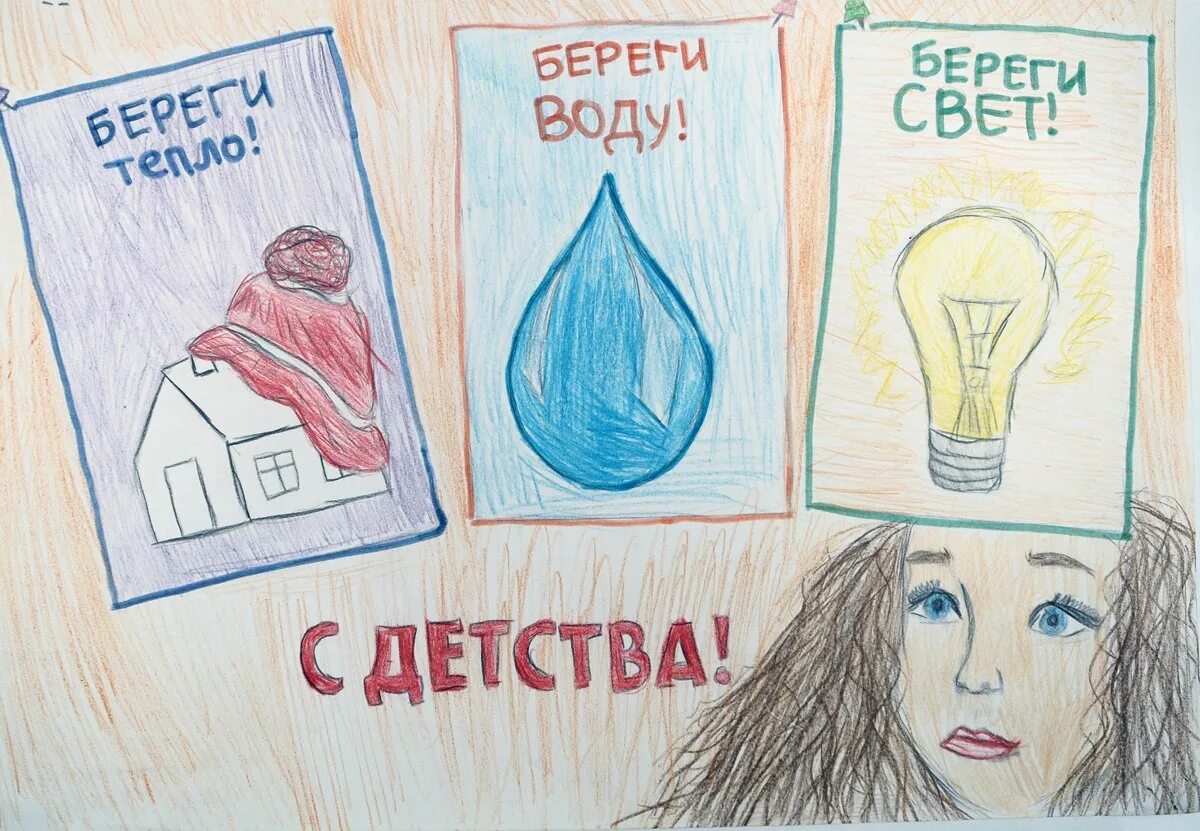 БЕРЕГИ
тепло!
БЕРЕГИ
ВОДУ!
БЕРЕГИ
СВЕТ!
С ДЕТСТВА!